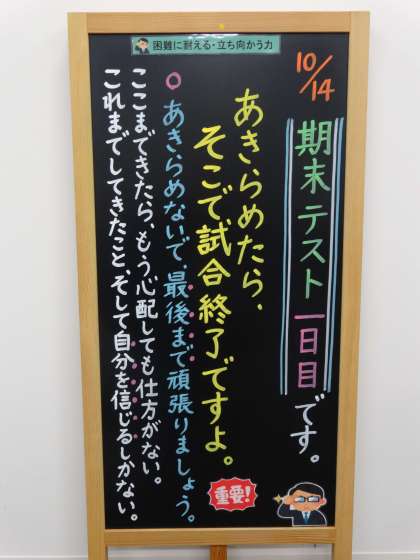 困難に耐える・立ち向かう力
10/14
期末テスト一日目です。
あきらめたら、
そこで試合終了ですよ。
重要!
○あきらめないで、最後まで頑張りましょう。
ここまできたら、もう心配しても仕方がない。
これまでしてきたこと、そして自分を信じるしかない。